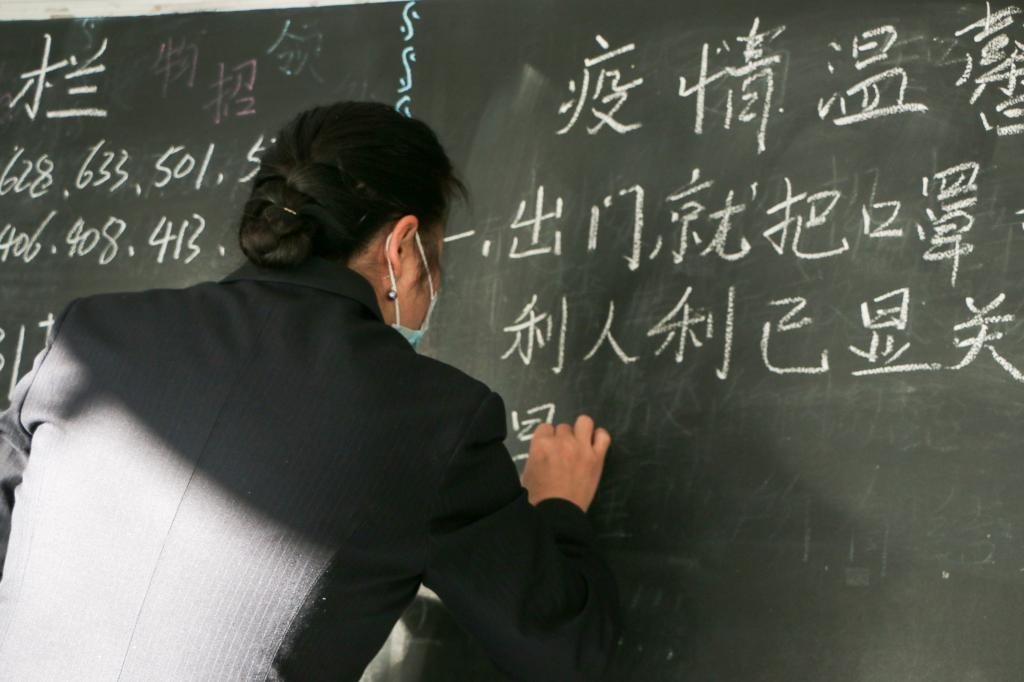 栏
物招领
628、633、501、5
406、408、413、
疫情温馨
一、出门就把口罩
利人利己显关